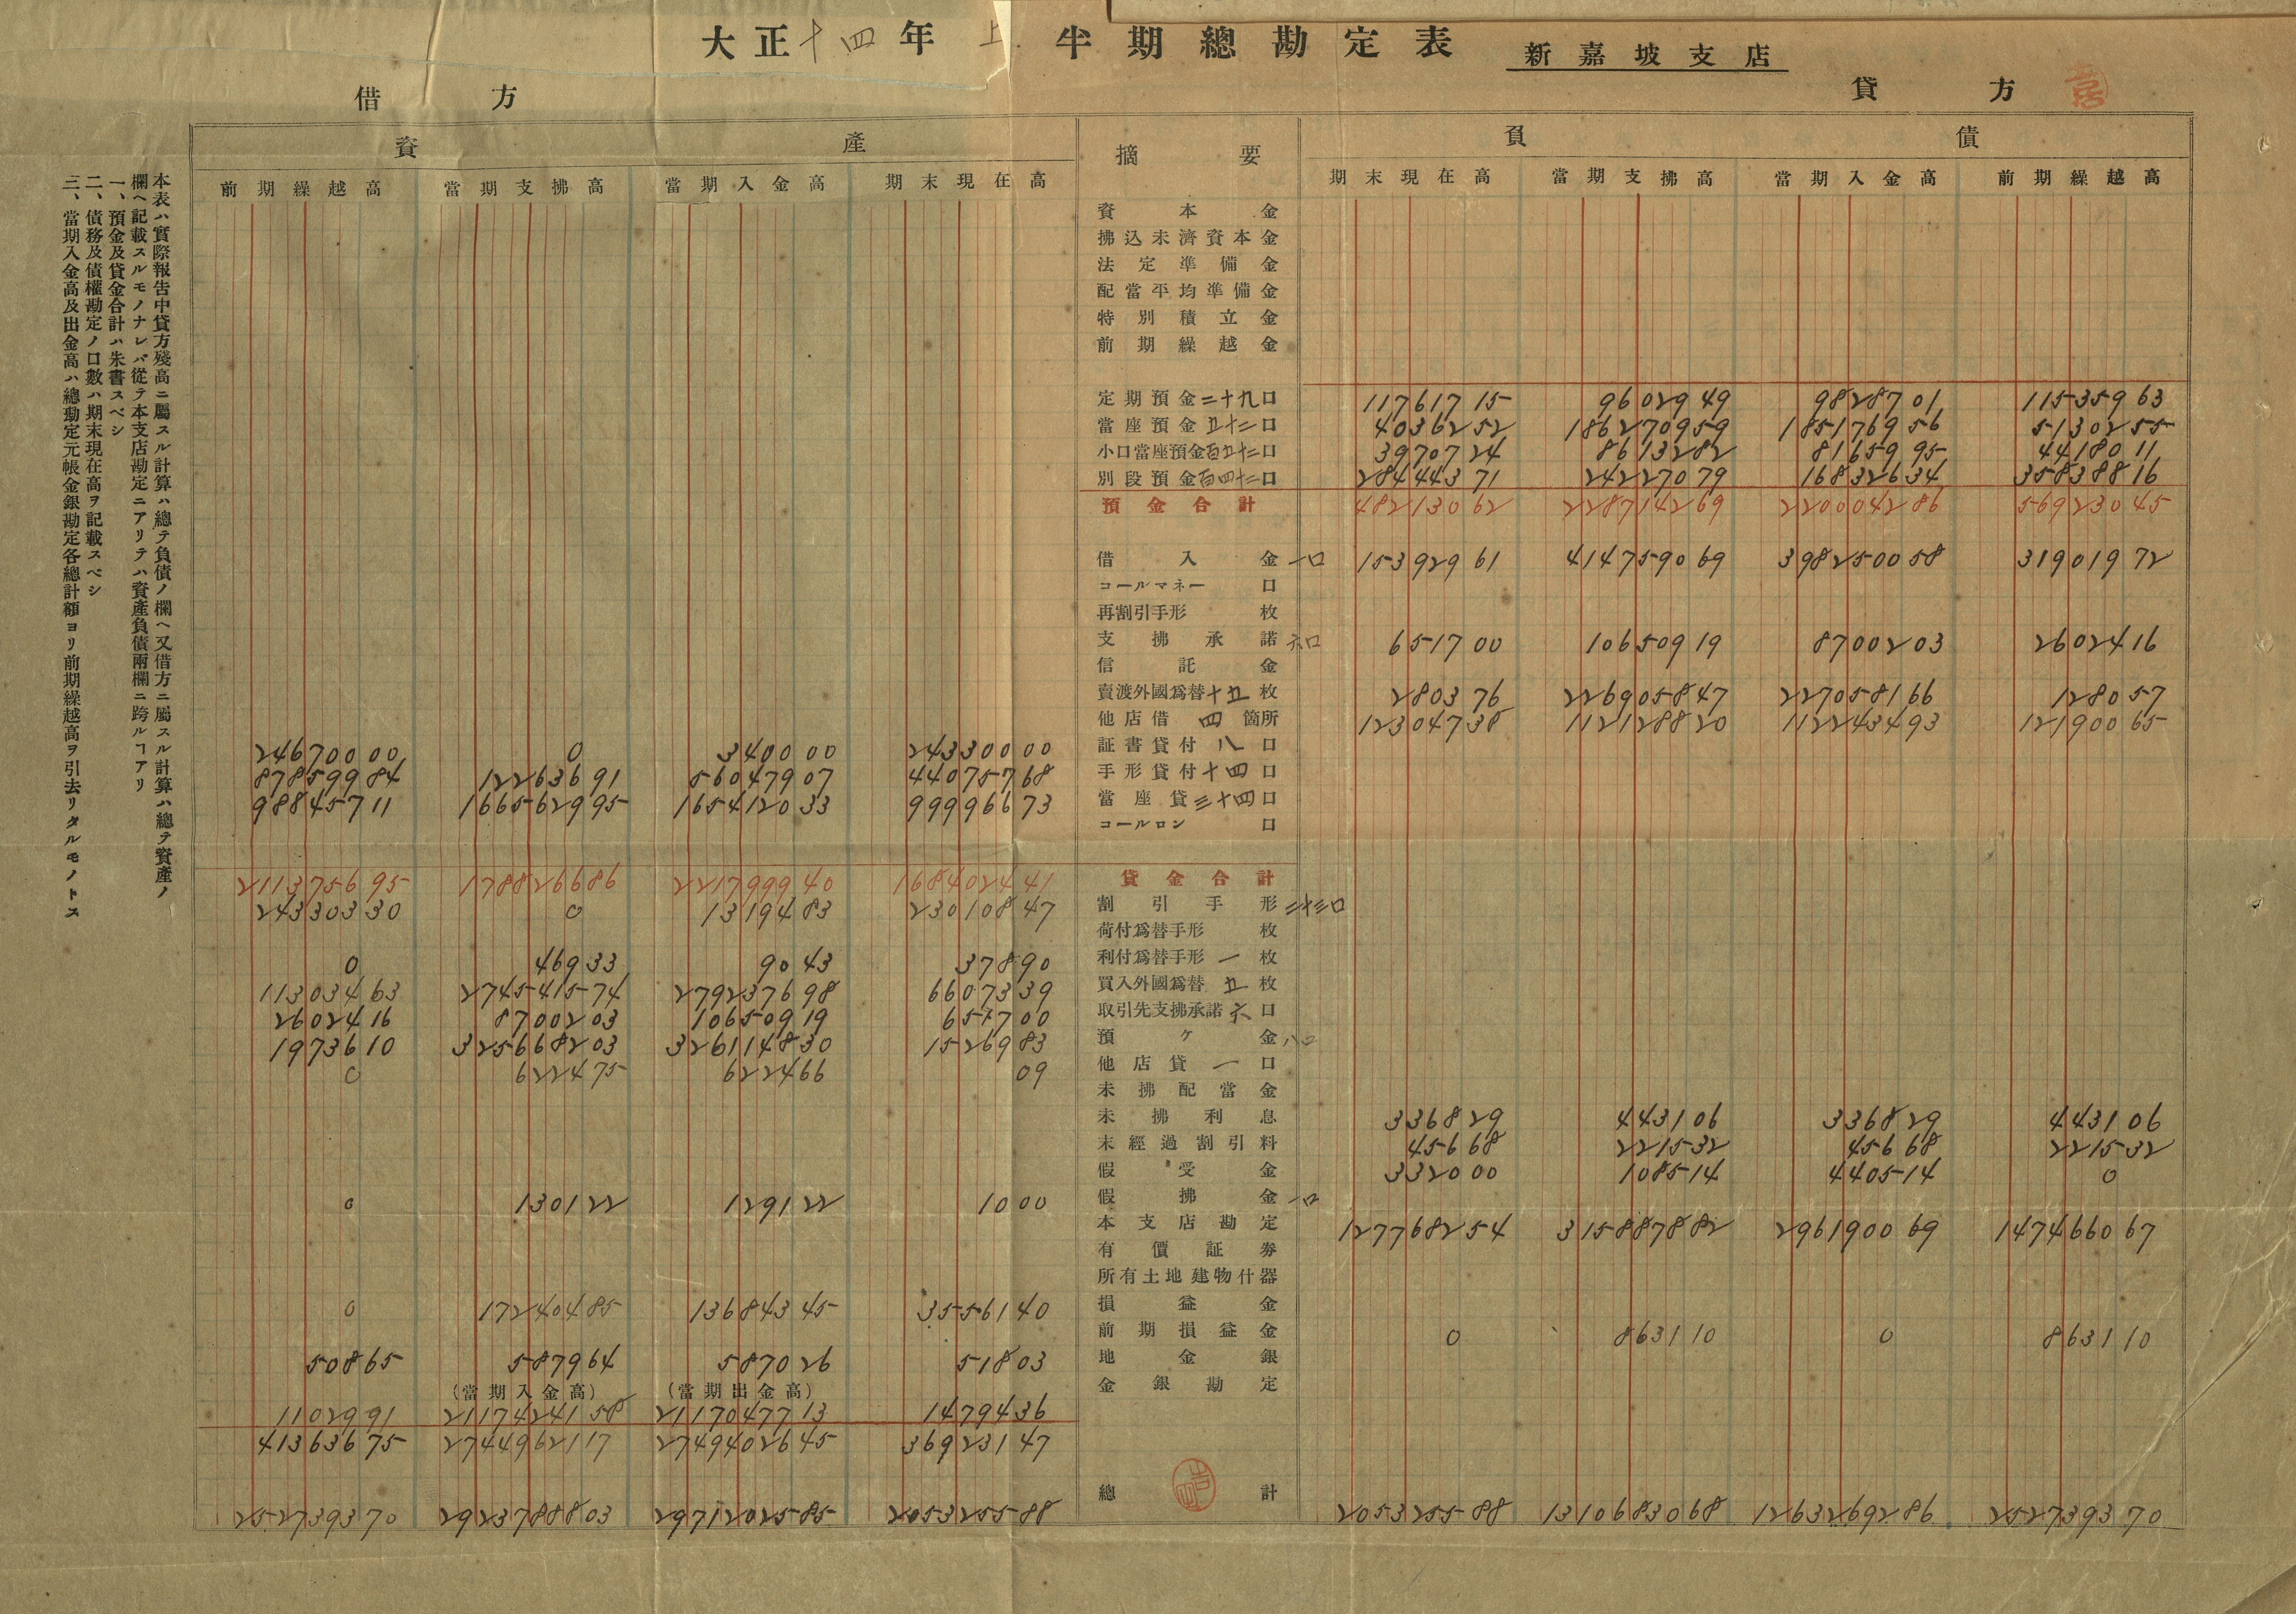 大正十四年上半期總勘定表 新嘉坡支店
借方 貸方
資產 摘要 負債
前期繰越高 當期支拂高 當期入金高 期末現在高 期末現在高 當期支拂高 當期入金高 前期繰越高
資本金
拂込未濟資本金
法定準備金
配當平均準備金
特別積立金
前期繰越金
定期預金二十九口 117617 15 96029 49 98287 01 115359 63
當座預金五十二口 40362 52 1862709 59 1851769 56 51302 55
小口當座預金百五十二口 39707 24 86132 82 81659 95 44180 11
別段預金百四十二口 284443 71 242270 79 168326 34 358388 16
預金合計 482130 62 2287142 69 2200042 86 569230 45
借入金一口 153929 61 4147590 69 3982500 58 319019 72
コールマネー 口
再割引手形 枚
支拂承諾六口 6517 00 106509 19 87002 03 26024 16
信託金
賣渡外國爲替十五枚 2803 76 2269058 47 2270581 66 1280 57
他店借四箇所 123047 38 1121288 20 1122434 93 121900 65
246700 00 0 3400 00 243300 00 証書貸付八口
878599 84 122636 91 560479 07 440757 68 手形貸付十四口
988457 11 1665629 95 1654120 33 999966 73 當座貸三十四口
コールロン 口
2113756 95 1788266 86 2217999 40 1684024 41 貸金合計
243303 30 0 13194 83 230108 47 割引手形二十三口
荷付爲替手形 枚
0 469 33 90 43 378 90 利付爲替手形一枚
113034 63 2745415 74 2792376 98 66073 39 買入外國爲替五枚
26024 16 87002 03 106509 19 6517 00 取引先支拂承諾六口
19736 10 3256682 03 3261148 30 15269 83 預ケ金八口
0 6224 75 6224 66 09 他店貸一口
未拂配當金
未拂利息 3368 29 4431 06 3368 29 4431 06
未經過割引料 456 68 2215 32 456 68 2215 32
假受金 3320 00 1085 14 4405 14 0
0 1301 22 1291 22 10 00 假拂金一口
本支店勘定 1277682 54 3158878 82 2961900 69 1474660 67
有價証券
所有土地建物什器
0 172404 85 136843 45 35561 40 損益金
前期損益金 0 8631 10 0 8631 10
508 65 5879 64 5870 26 518 03 地金銀
(當期入金高) (當期出金高) 金銀勘定
11029 91 21174241 58 21170477 13 14794 36
413636 75 27449621 17 27494026 45 369231 47
2527393 70 29237888 03 29712025 85 2053255 88 總計 2053255 88 13106830 68 12632692 86 2527393 70
本表ハ實際報告中貸方殘高ニ屬スル計算ハ總テ負債ノ欄ヘ又借方ニ屬スル計算ハ總テ資產ノ
欄ヘ記載スルモノナレバ從テ本支店勘定ニアリテハ資產負債兩欄ニ跨ルヿアリ
一、預金及貸金合計ハ朱書スベシ
二、債務及債權勘定ノ口數ハ期末現在高ヲ記載スベシ
三、當期入金高及出金高ハ總勘定元帳金銀勘定各總計額ヨリ前期繰越高ヲ引去リタルモノトス